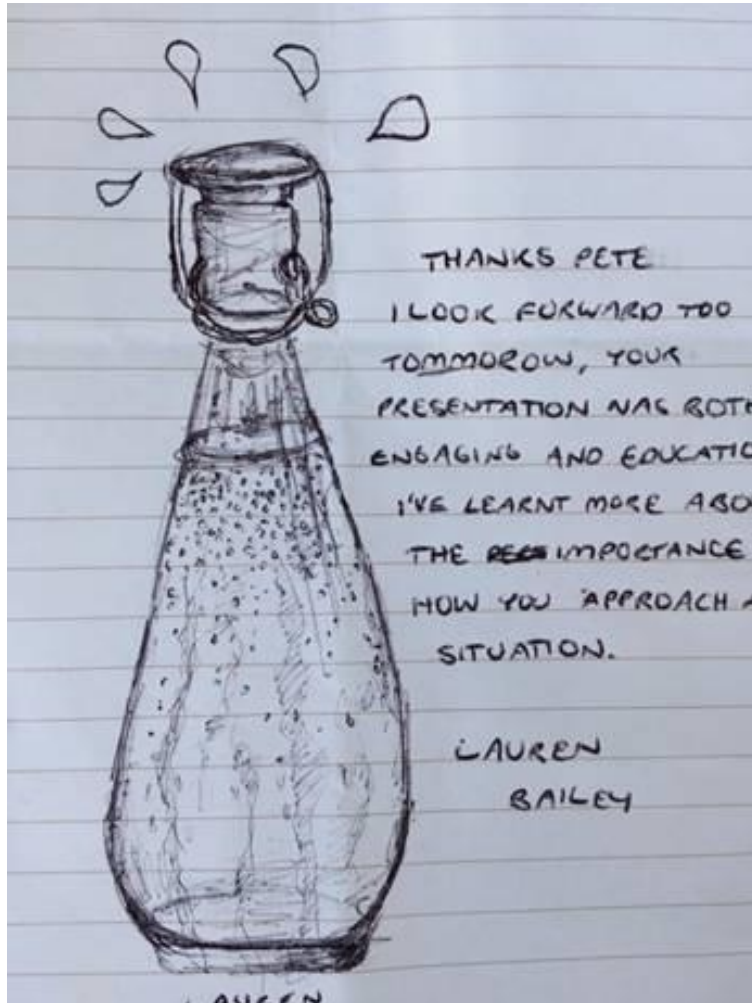 THANKS PETE
I LOOK FORWARD TOO
TOMMOROW, YOUR
PRESENTATION WAS BOTH
ENGAGING AND
I'VE LEARNT MORE
THE IMPORTANCE
HOW YOU APPROACH A
SITUATION.
LAUREN
BAILEY
LAUREN